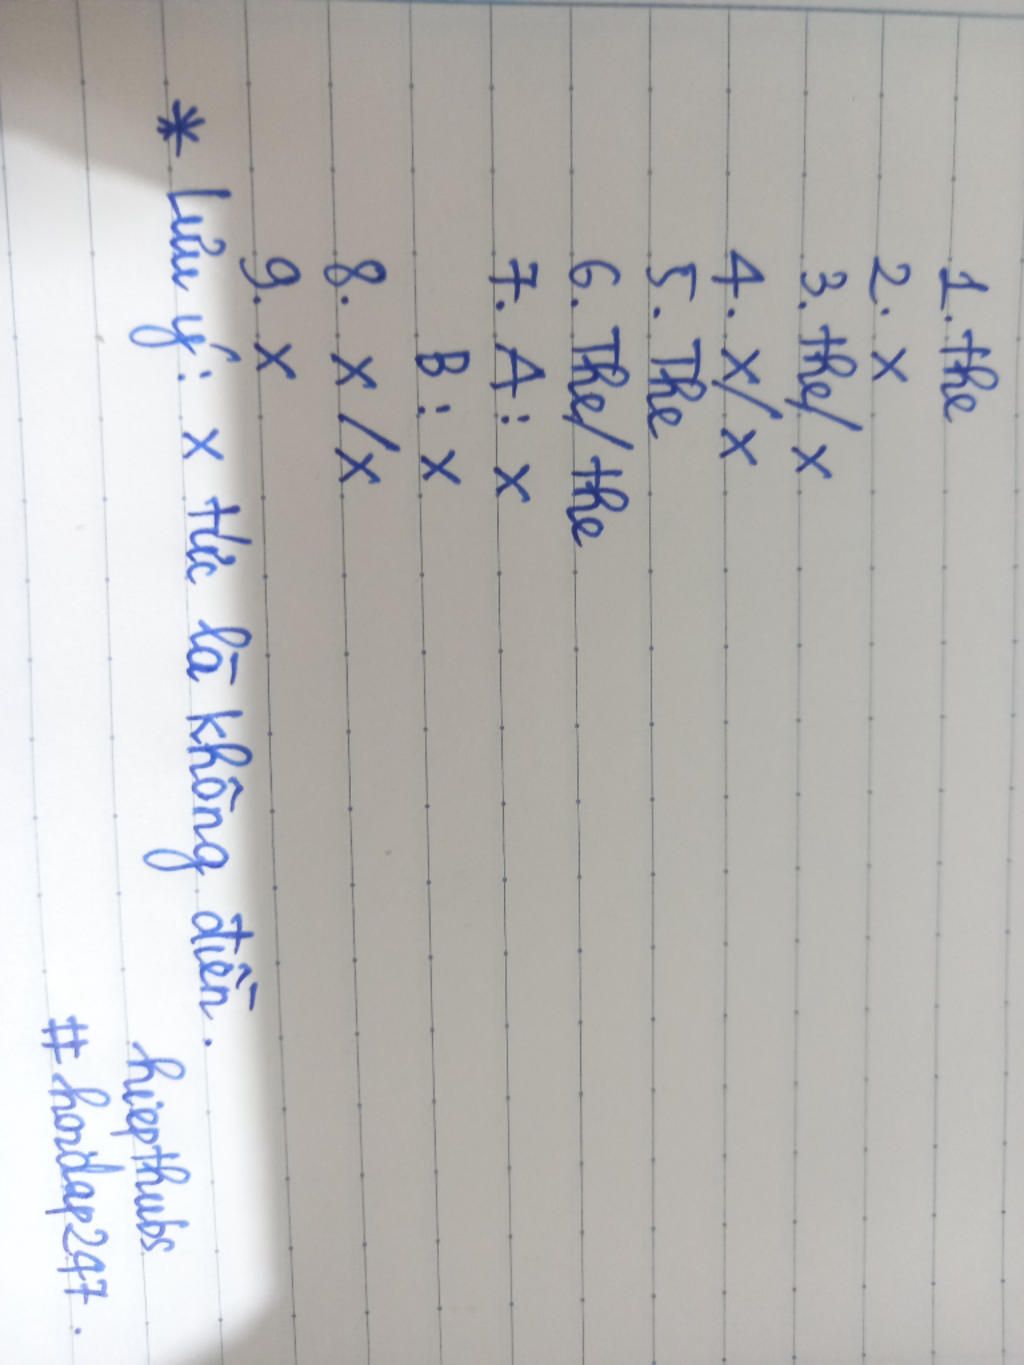 1. the
2. x
3. the/ x
4. x/ x
5. The
6. The/ the
7. A: x
B: x
8. x / x
9. x
* Lưu ý: x tức là không điền.
hiepthubs
#hoidap247.